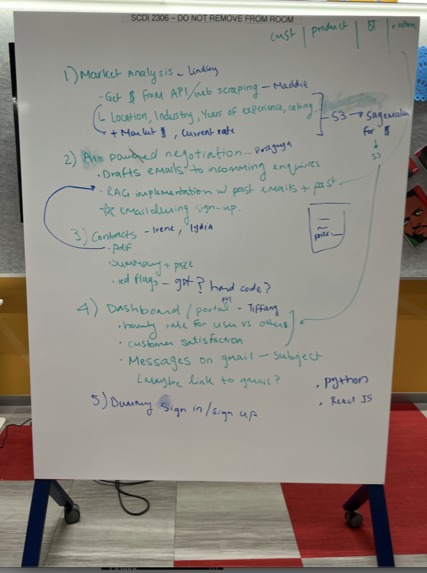 SCDI 2306 - DO NOT REMOVE FROM ROOM
cust | product |
1) Market Analysis - Lindsay
- Get $ from API/web scraping - Maddie
Location, Industry, Years of experience, rating
+ Market $, current rate
S3 → sagemaker
for $
↓
S3
2) powered negotiation - Pragnya
• Drafts emails to incomming enquires
• RAG implementation w past emails + past
☆ email during sign-up
3) Contracts - Irene, Lydia
• pdf
• summary + price
• red flags - gpt? hard code?
4) Dashboard / portal - Tiffany
• hourly rate for user vs. others
• customer satisfaction
• Messages on gmail - subject
(maybe link to gmail?
• Python
• React JS
5) Dummy Sign in/sign up